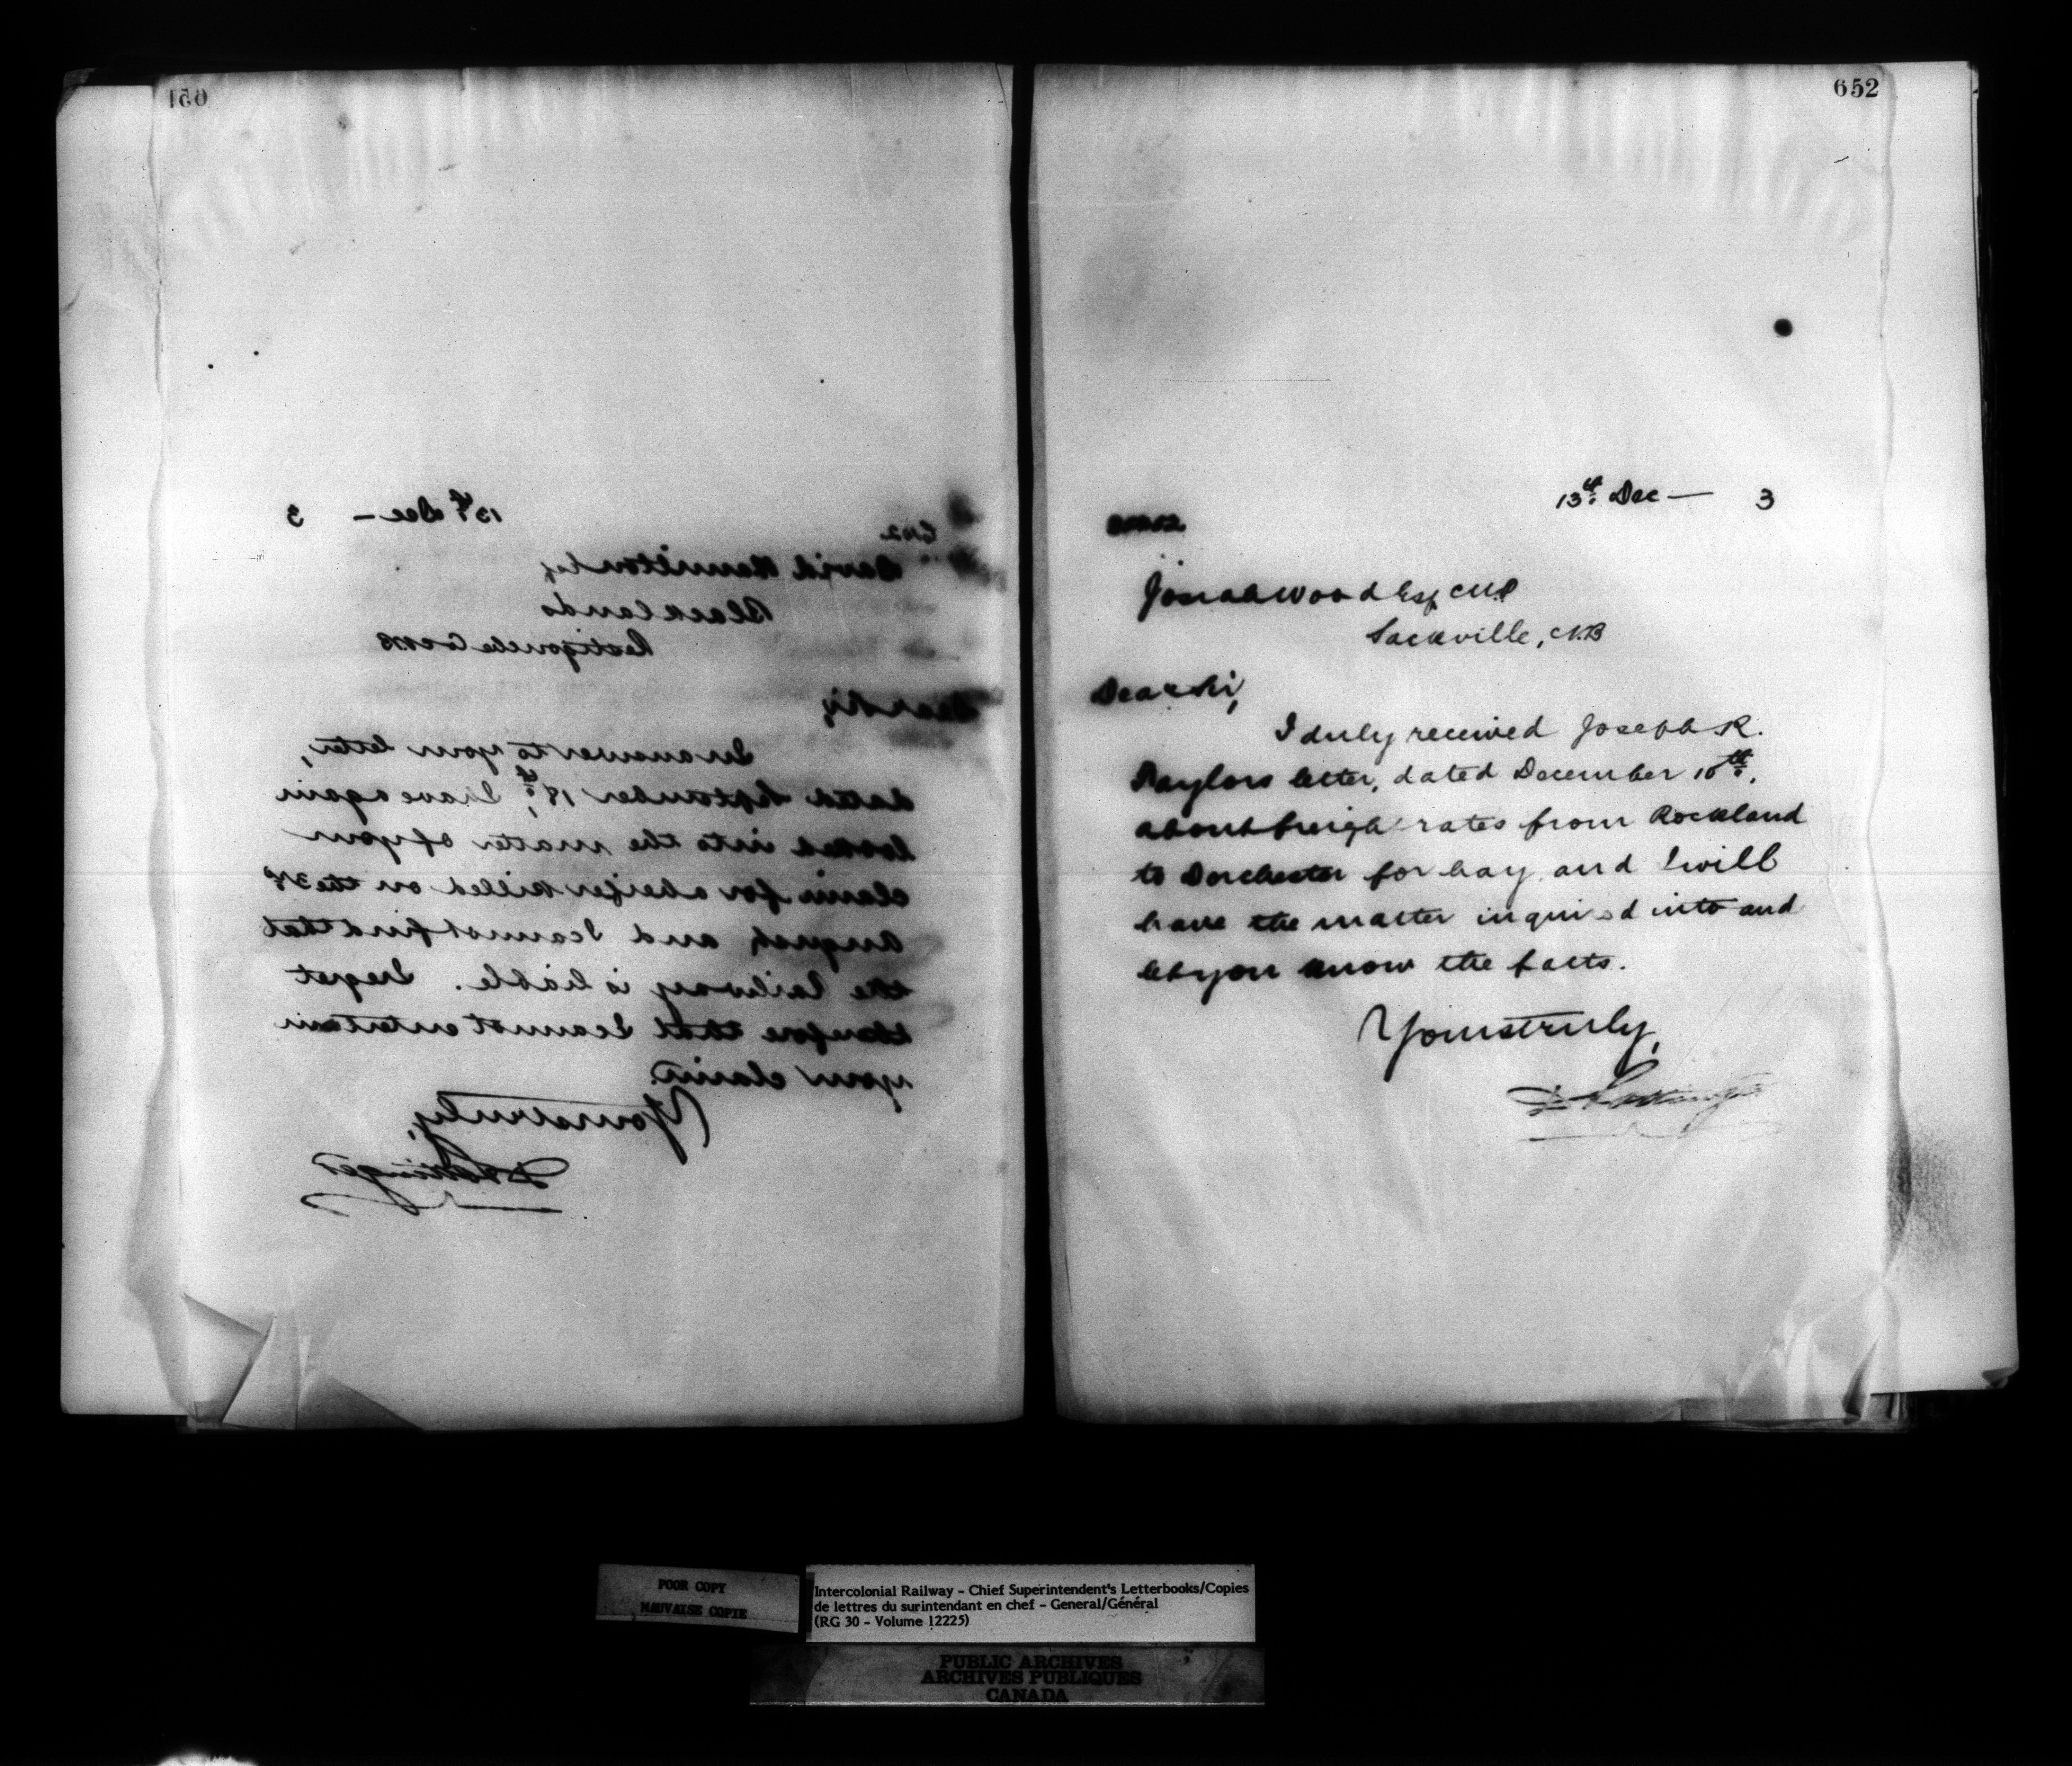 651
13th Dec — 3
6102
David Hamilton Esq
Blacklands
Restigouche Co NB
Dear Sir,
In answer to your letter,
dated September 18th, I have again
looked into the matter of your
claim for a heifer killed on the 31st
August, and I cannot find that
the Railway is liable. I regret
therefore that I cannot entertain
your claim.
Yours truly,
D Pottinger
652
13th Dec — 3
Josiah Wood Esq MP
Sackville, N.B
Dear Sir,
I duly received Joseph R.
Taylors letter, dated December 10th,
about freight rates from Rockland
to Dorchester for hay, and I will
have the matter inquired into and
let you know the facts.
Yours truly,
D Pottinger
POOR COPY
MAUVAISE COPIE
Intercolonial Railway - Chief Superintendent's Letterbooks/Copies
de lettres du surintendant en chef - General/Général
(RG 30 - Volume 12225)
PUBLIC ARCHIVES
ARCHIVES PUBLIQUES
CANADA